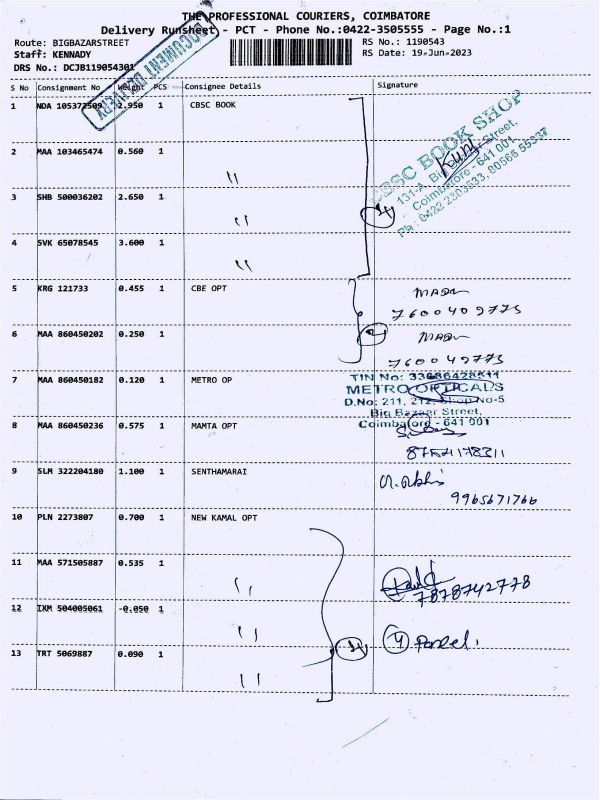 THE PROFESSIONAL COURIERS, COIMBATORE
Delivery Runsheet - PCT - Phone No.:0422-3505555 - Page No.:1
Route: BIGBAZARSTREET
RS No.: 1190543
Staff: KENNADY
RS Date: 19-Jun-2023
DRS No.: DCJB119054301
DOCUMENT DELIVERY
S No Consignment No Weight PCS Consignee Details Signature
1 NDA 105372509 2.950 1 CBSC BOOK
CBSC BOOK SHOP
131-A, Big Street,
Coimbatore - 641 001
Ph : 0422 2303633, 80566 55337
2 MAA 103465474 0.560 1 "
3 SHB 500036202 2.650 1 "
4
4 SVK 65078545 3.600 1 "
5 KRG 121733 0.455 1 CBE OPT
6 MAA 860450202 0.250 1
2
7 MAA 860450182 0.120 1 METRO OP
METRO OPTICALS
D.No: 211, 212, Shop No-5
Big Bazaar Street,
Coimbatore - 641 001
8 MAA 860450236 0.575 1 MAMTA OPT
9 SLM 322204180 1.100 1 SENTHAMARAI
9965671766
10 PLN 2273807 0.700 1 NEW KAMAL OPT
11 MAA 571505887 0.535 1 "
7878742778
12 IXM 504005061 -0.050 1 "
4 Parcel.
13 TRT 5069887 0.090 1 "
4